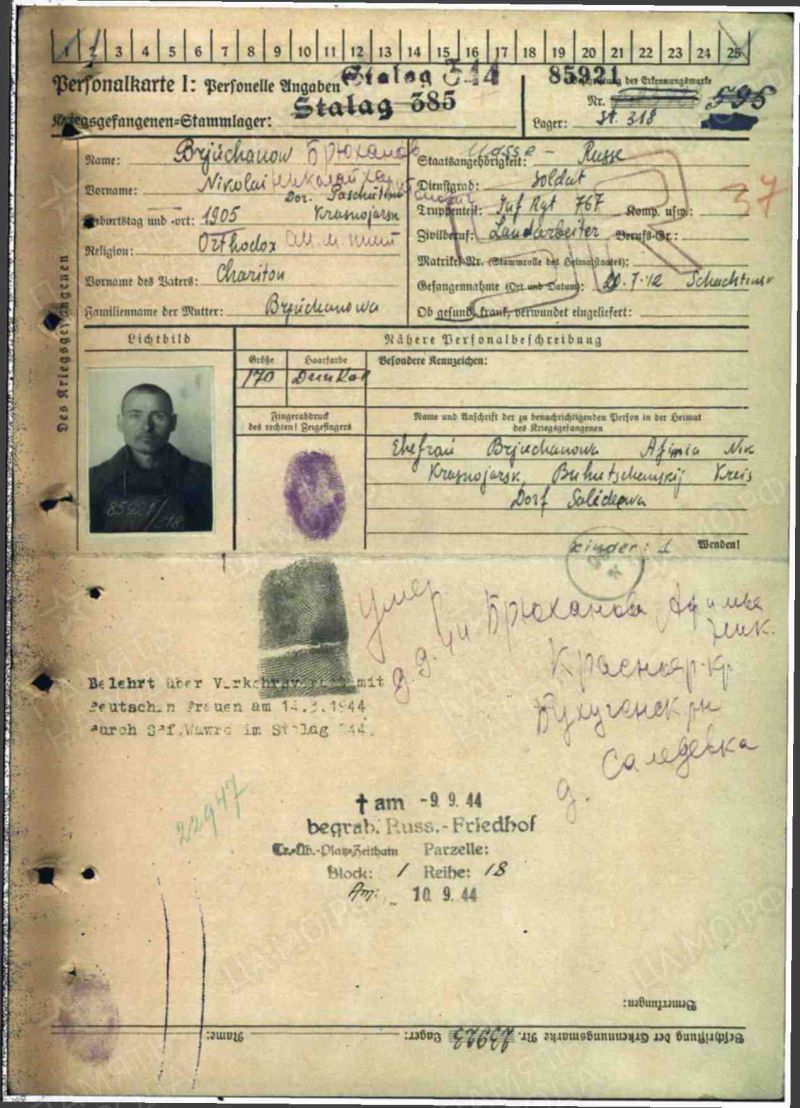 1 2 3 4 5 6 7 8 9 10 11 12 13 14 15 16 17 18 19 20 21 22 23 24 25
Personalkarte I: Personelle Angaben
Stalag
85921
der Erkennungsmarke
Kriegsgefangenen=Stammlager:
Stalag 385
Nr. 595
Lager: St. 318
Des Kriegsgefangenen
Name: Brjuchanow Брюханов
Vorname: Nikolai Николай
Dor.
Geburtstag und -ort: 1905 Krasnojarsk
Religion: Orthodox
Vorname des Vaters: Chariton
Familienname der Mutter: Brjuchanowa
Staatsangehörigkeit: Russe
Dienstgrad: Soldat
Truppenteil: Inf Rgt 767 Komp. usw.:
37
Zivilberuf: Landarbeiter Berufs-Gr.:
Matrikel-Nr. (Stammrolle des Heimatstaates):
Gefangennahme (Ort und Datum): 20.7.42
Ob gesund, krank, verwundet eingeliefert:
Lichtbild
Nähere Personalbeschreibung
Größe
Haarfarbe
Besondere Kennzeichen:
170
Dunkel
Fingerabdruck
des rechten! Zeigefingers
Name und Anschrift der zu benachrichtigenden Person in der Heimat
des Kriegsgefangenen
Ehefrau Brjuchanowa Afimia Nik
Krasnojarsk, Kreis
Dorf
85921/318
Kinder: 1
Wenden!
Умер
9.9.44
Брюханова
Ник.
Краснояр кр
д. Саледевка
Belehrt über Verkehrsverbot mit
deutschen Frauen am 14.3.1944
durch Gef. Wawro im Stalag 344.
22947
† am - 9. 9. 44
begrab. Russ.-Friedhof
Tr.-Üb.-Platz Zeithain Parzelle:
Block: 1 Reihe: 18
Am: 10. 9. 44
Bemerkungen:
Beschriftung der Erkennungsmarke Nr. Lager: Name: